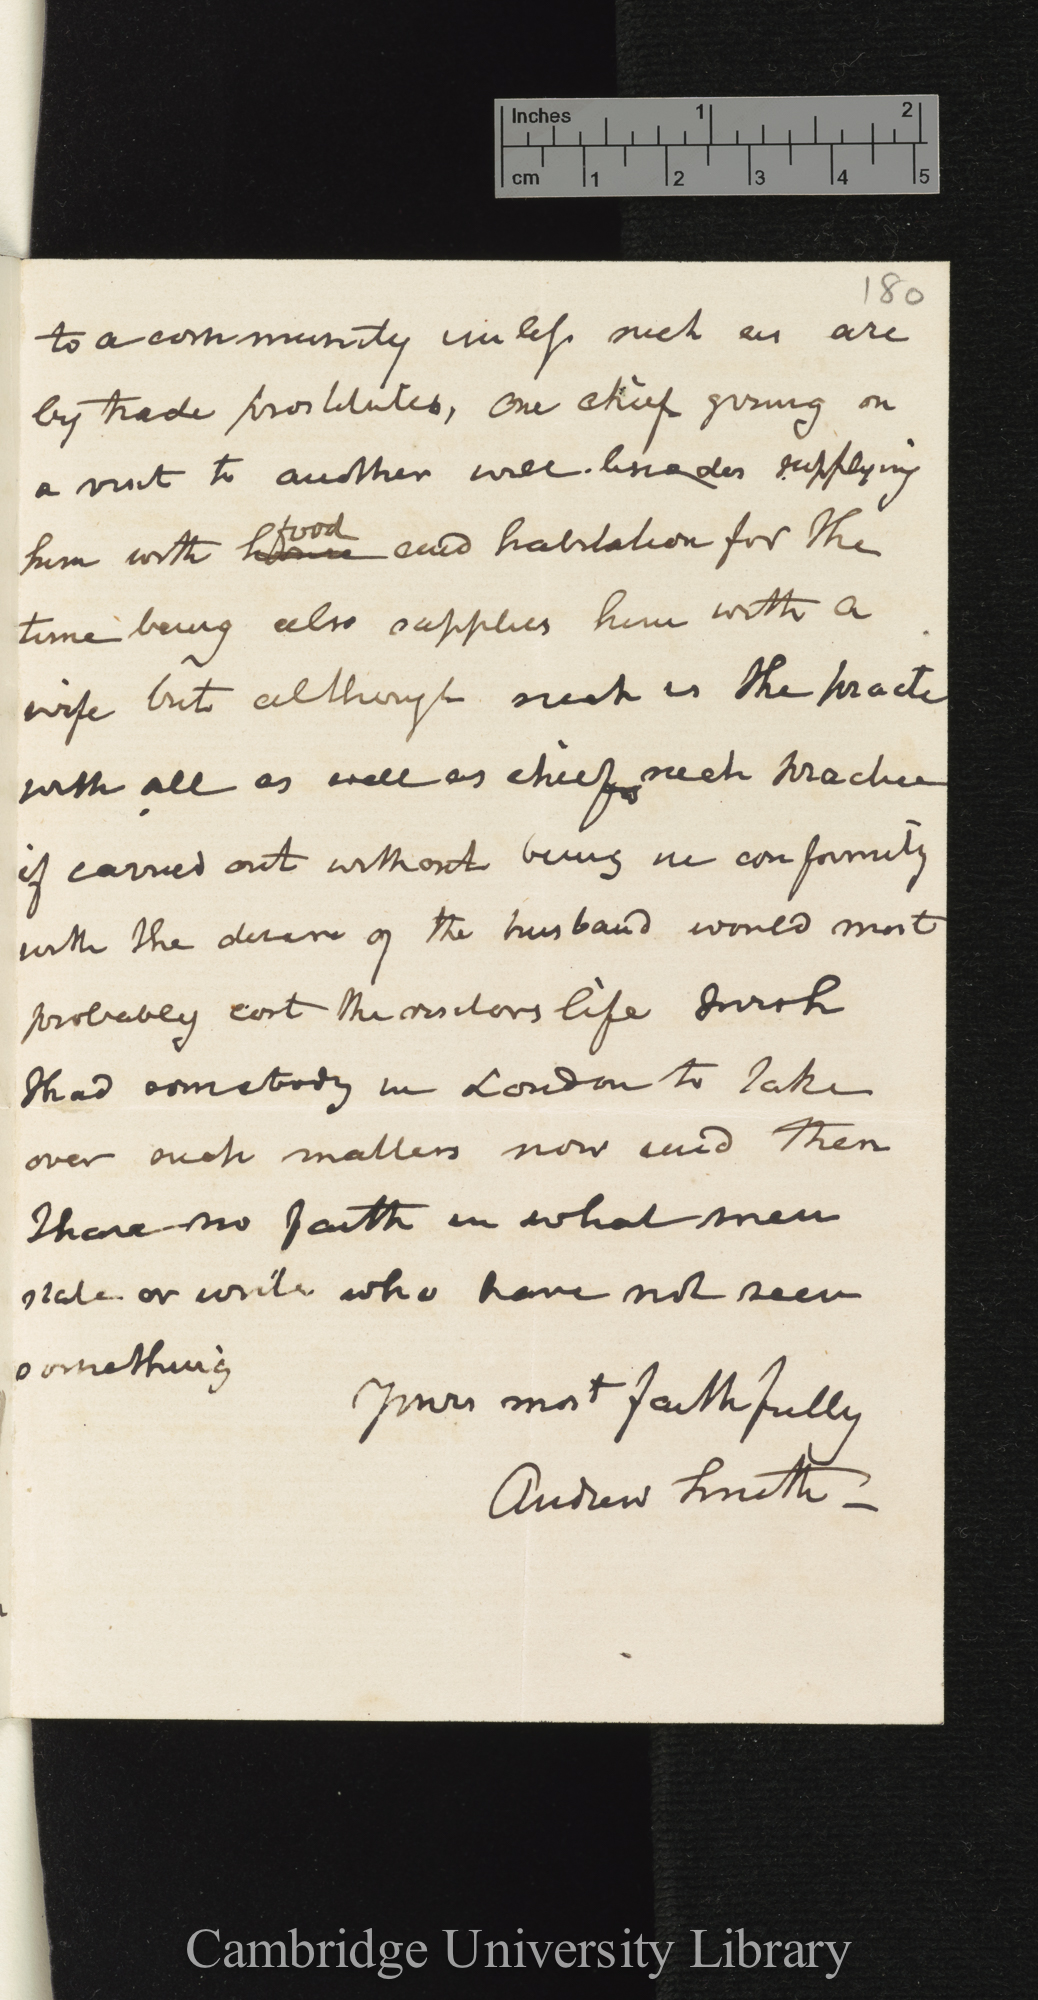 Inches 1 2
cm 1 2 3 4 5
180
to a community unless such as are
by trade prostitutes, One chief going on
a visit to another will besides supplying
him with house food and habitation for the
time being also supplies him with a
wife but although such is the practe
with all as well as chiefs such practice
if carried out without being in conformity
with the desire of the husband would most
probably cost the visitors life I wish
I had somebody in London to take
over such matters now and then
I have no faith in what men
state or write who have not seen
something
Yours most faithfully
Andrew Smith
Cambridge University Library